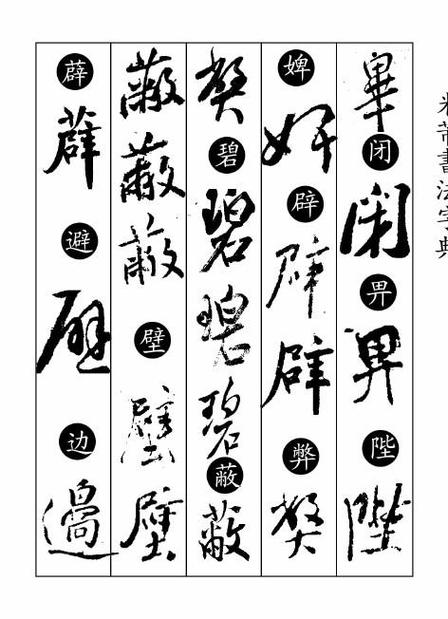 米芾書法字典
畢闭閉畀畀陛陛
婢婢辟辟辟弊弊
弊碧碧碧碧蔽蔽
蔽蔽蔽壁壁壁
薜薜避避边邊